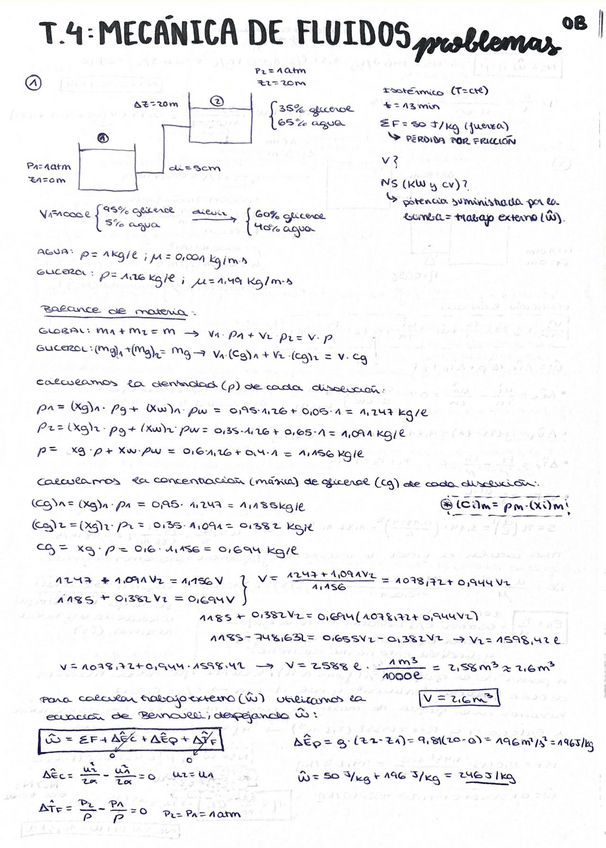 T.4: MECÁNICA DE FLUIDOS problemas
OB
①
P2=1atm
z2=20m
ΔZ=20m
②
{35% glicerol
65% agua
①
P1=1atm
z1=0m
di=5cm
Isotérmico (T=cte)
t=13min
ΣF=50 J/kg (fuerza)
↳ PÉRDIDA POR FRICCIÓN
V?
NS (KW y CV)?
↳ potencia suministrada por la
bomba = trabajo externo (ŵ).
V1=1000ℓ {95% glicerol
5% agua
diluir →
{60% glicerol
40% agua
AGUA: ρ=1kg/ℓ; μ=0,001 kg/m·s
GLICEROL: ρ=1,26 kg/ℓ; μ=1,49 kg/m·s
Balance de materia:
GLOBAL: m1+m2=m → V1·ρ1+V2·ρ2=V·ρ
GLICEROL: (mg)1+(mg)2=mg → V1·(Cg)1+V2·(Cg)2=V·Cg
Calculamos la densidad (ρ) de cada disolución:
ρ1=(Xg)1·ρg+(Xw)1·ρw=0,95·1,26+0,05·1=1,247 kg/ℓ
ρ2=(Xg)2·ρg+(Xw)2·ρw=0,35·1,26+0,65·1=1,091 kg/ℓ
ρ=Xg·ρ+Xw·ρw=0,6·1,26+0,4·1=1,156 kg/ℓ
Calculamos la concentración (másica) de glicerol (Cg) de cada disolución:
(Cg)1=(Xg)1·ρ1=0,95·1,247=1,185kg/ℓ
⊛ (Ci)m=ρm·(Xi)m
(Cg)2=(Xg)2·ρ2=0,35·1,091=0,382 kg/ℓ
Cg=Xg·ρ=0,6·1,156=0,694 kg/ℓ
1247+1,091V2=1,156V
1185+0,382V2=0,694V
} V=1247+1,091V2/1,156=1078,72+0,944V2
1185+0,382V2=0,694(1078,72+0,944V2)
1185-748,632=0,655V2-0,382V2 → V2=1598,42ℓ
V=1078,72+0,944·1598,42 → V=2588ℓ·1m³/1000ℓ=2,58m³≈2,6m³
V=2,6m³
Para calcular trabajo externo (ŵ) utilizamos la
ecuación de Bernoulli; despejando ŵ:
ŵ=ΣF+ΔÊc+ΔÊp+ΔT̂F
0 0
ΔÊp=g·(z2-z1)=9,81(20-0)=196m²/s²=196J/kg
ΔÊc=u2²/2α-u1²/2α=0 u2=u1
ŵ=50 J/kg+196 J/kg=246J/kg
ΔT̂F=P2/ρ-P1/ρ=0 P2=P1=1atm